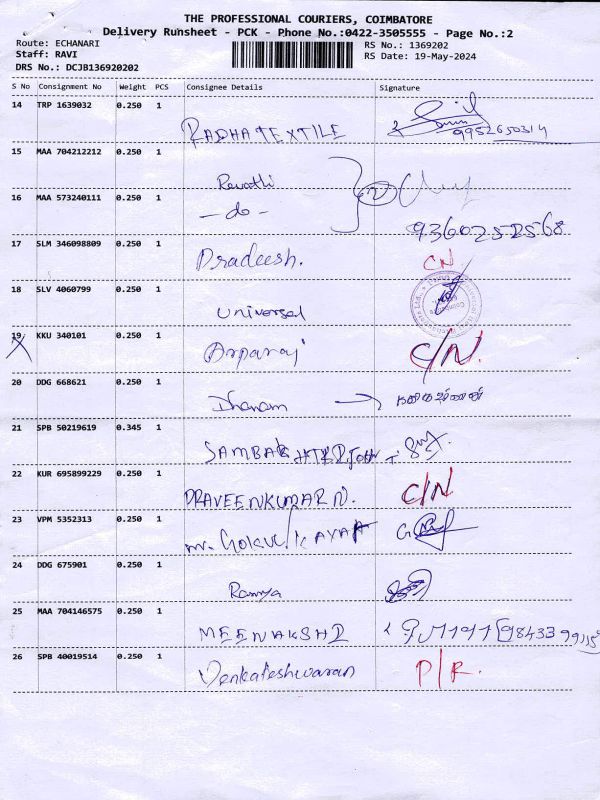 THE PROFESSIONAL COURIERS, COIMBATORE
Delivery Runsheet - PCK - Phone No.:0422-3505555 - Page No.:2
Route: ECHANARI
RS No.: 1369202
Staff: RAVI
RS Date: 19-May-2024
DRS No.: DCJB136920202
S No Consignment No Weight PCS Consignee Details Signature
14 TRP 1639032 0.250 1
RADHA TEXTILE
9952650314
15 MAA 704212212 0.250 1
Revathi
16 MAA 573240111 0.250 1
- do -
9360252568
17 SLM 346098809 0.250 1
Pradeesh. CN
18 SLV 4060799 0.250 1
Universal
19 KKU 340101 0.250 1
Arparaj C/N.
20 DDG 668621 0.250 1
Dhanam →
21 SPB 50219619 0.345 1
22 KUR 695899229 0.250 1
PRAVEENKUMAR N. C/N
23 VPM 5352313 0.250 1
Mr. GOKUL
24 DDG 675901 0.250 1
Ramya
25 MAA 704146575 0.250 1
MEENAKSHI
26 SPB 40019514 0.250 1
Venkateshwaran P/R.